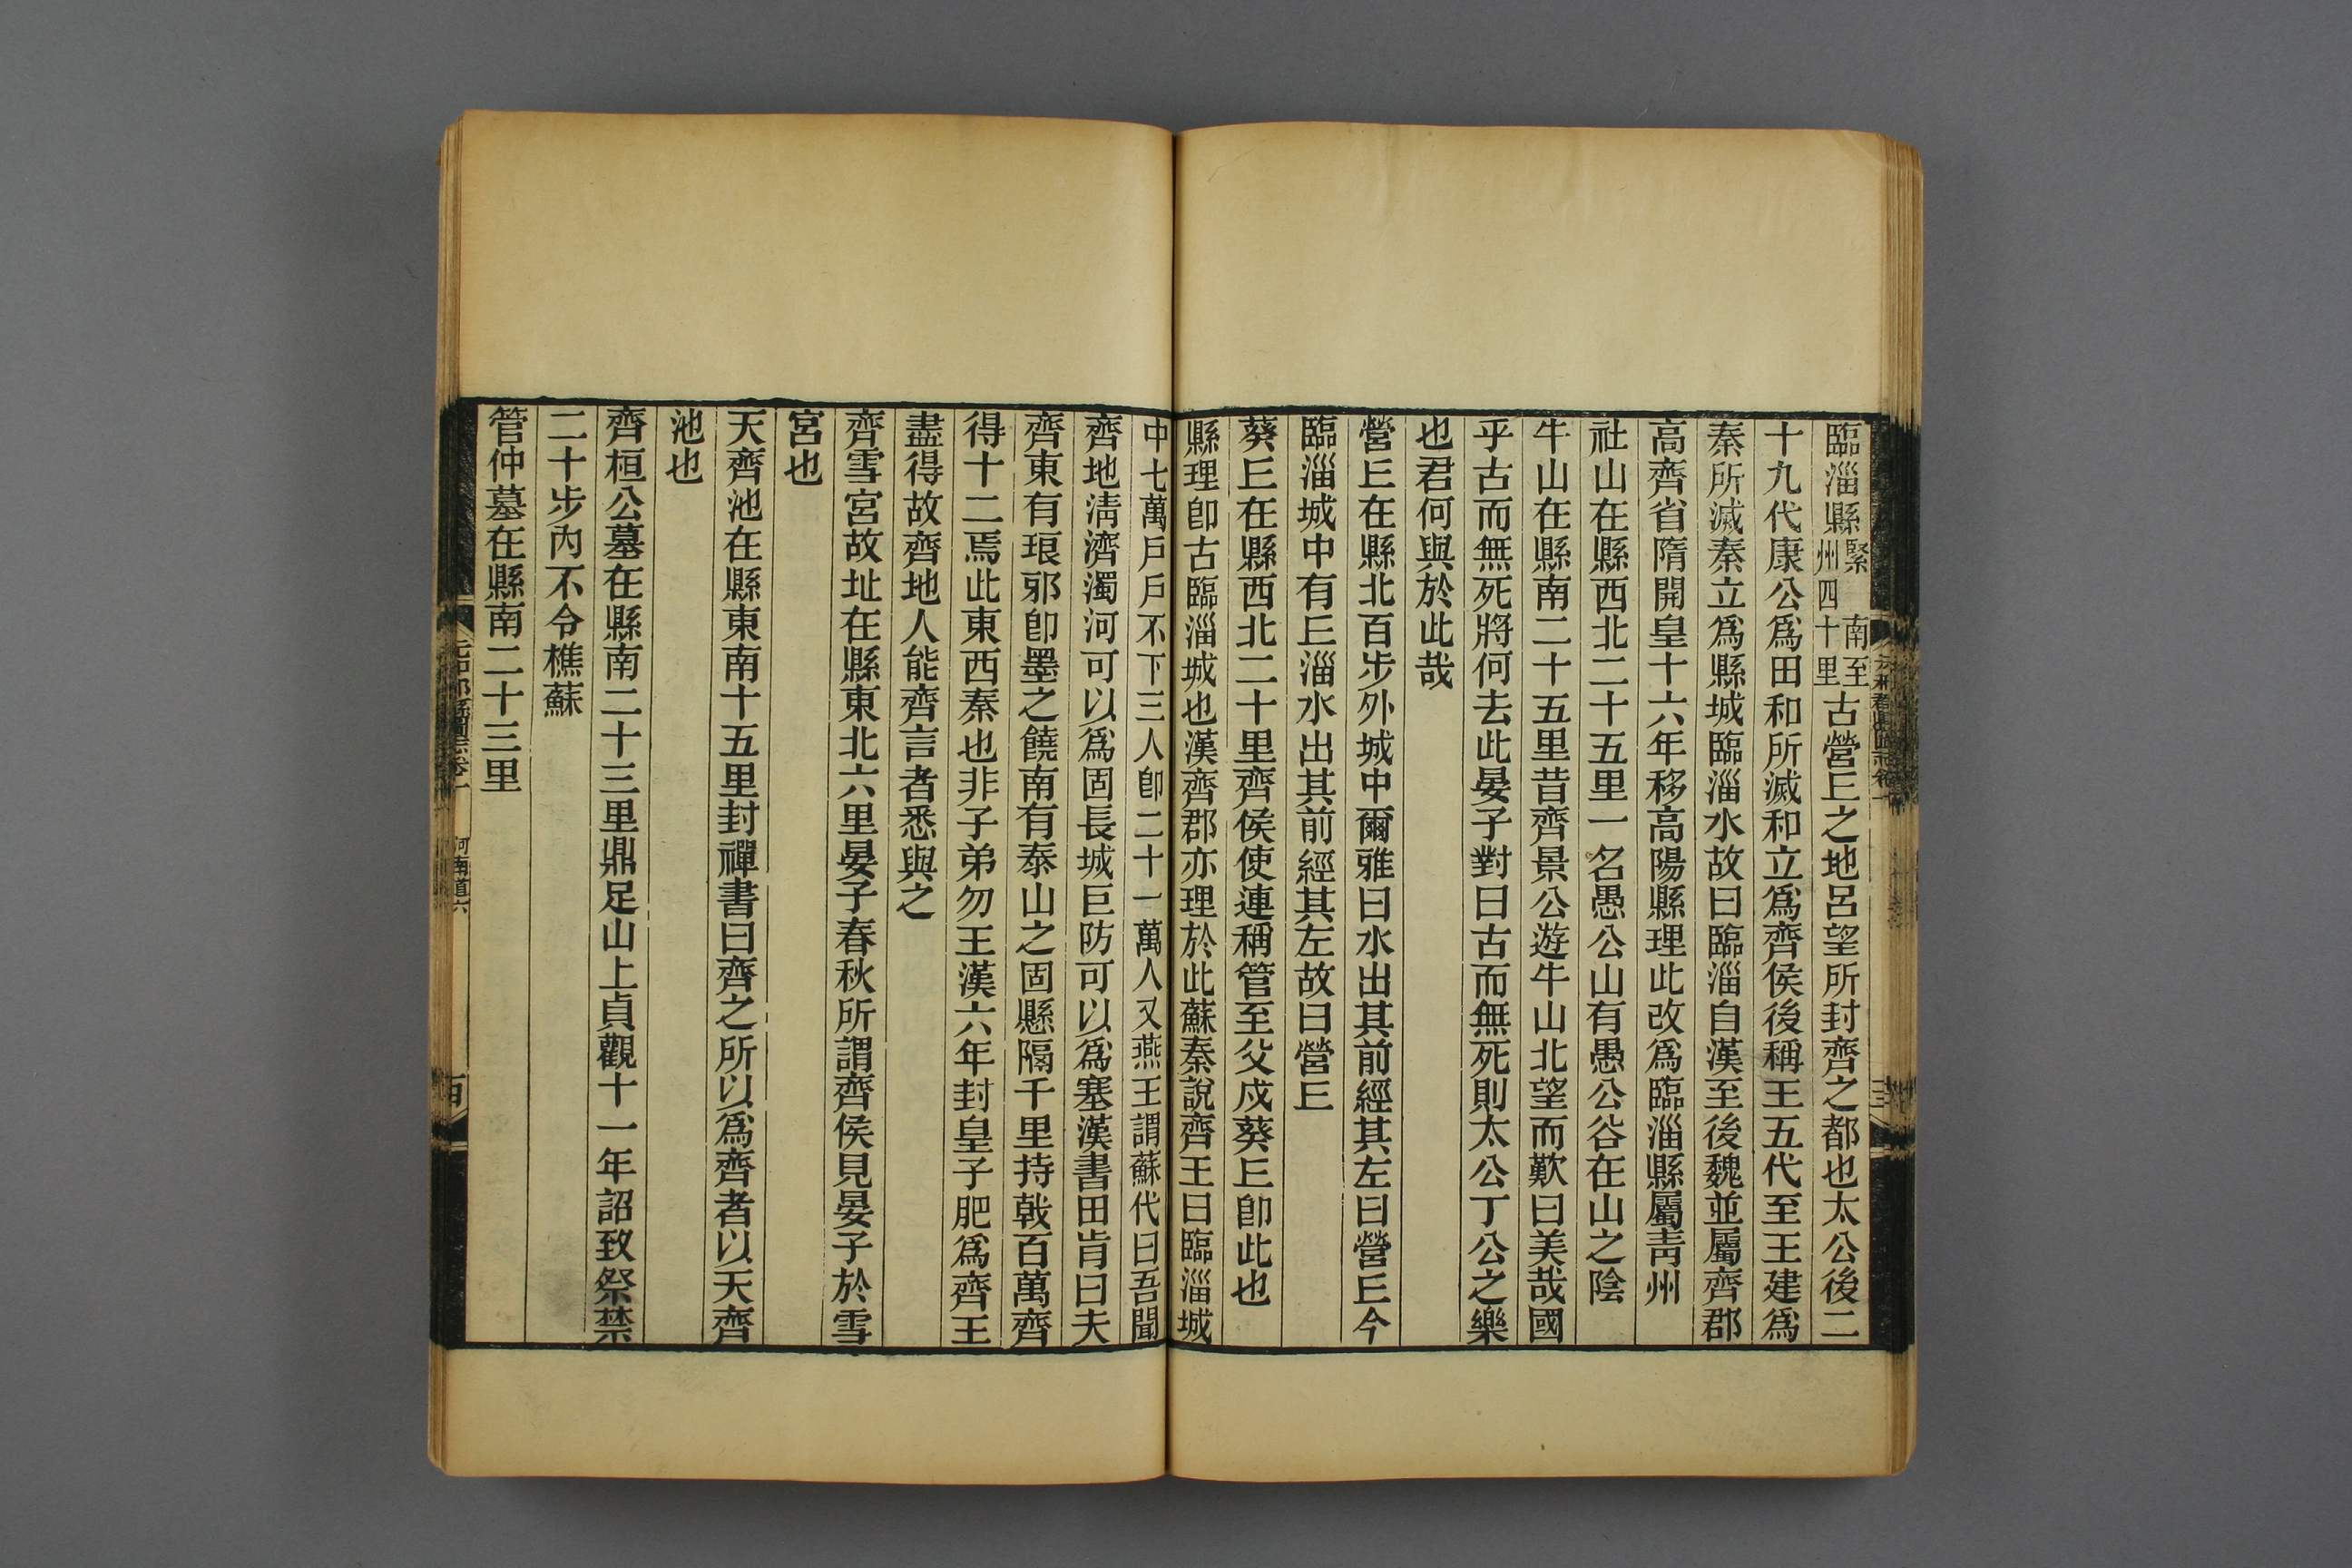 臨淄縣緊 南至州四十里古營丘之地呂望所封齊之都也太公後二
十九代康公爲田和所滅和立爲齊侯後稱王五代至王建爲
秦所滅秦立爲縣城臨淄水故曰臨淄自漢至後魏並屬齊郡
高齊省隋開皇十六年移高陽縣理此改爲臨淄縣屬青州
社山在縣西北二十五里一名愚公山有愚公谷在山之陰
牛山在縣南二十五里昔齊景公遊牛山北望而歎曰美哉國
乎古而無死將何去此晏子對曰古而無死則太公丁公之樂
也君何與於此哉
營丘在縣北百步外城中爾雅曰水出其前經其左曰營丘今
臨淄城中有丘淄水出其前經其左故曰營丘
葵丘在縣西北二十里齊侯使連稱管至父戍葵丘卽此也
縣理卽古臨淄城也漢齊郡亦理於此蘇秦說齊王曰臨淄城
中七萬戶戶不下三人卽二十一萬人又燕王謂蘇代曰吾聞
齊地淸濟濁河可以爲固長城巨防可以爲塞漢書田肯曰夫
齊東有琅邪卽墨之饒南有泰山之固懸隔千里持戟百萬齊
得十二焉此東西秦也非子弟勿王漢六年封皇子肥爲齊王
盡得故齊地人能齊言者悉與之
齊雪宮故址在縣東北六里晏子春秋所謂齊侯見晏子於雪
宮也
天齊池在縣東南十五里封禪書曰齊之所以爲齊者以天齊
池也
齊桓公墓在縣南二十三里鼎足山上貞觀十一年詔致祭禁
二十步內不令樵蘇
管仲墓在縣南二十三里
河南道六